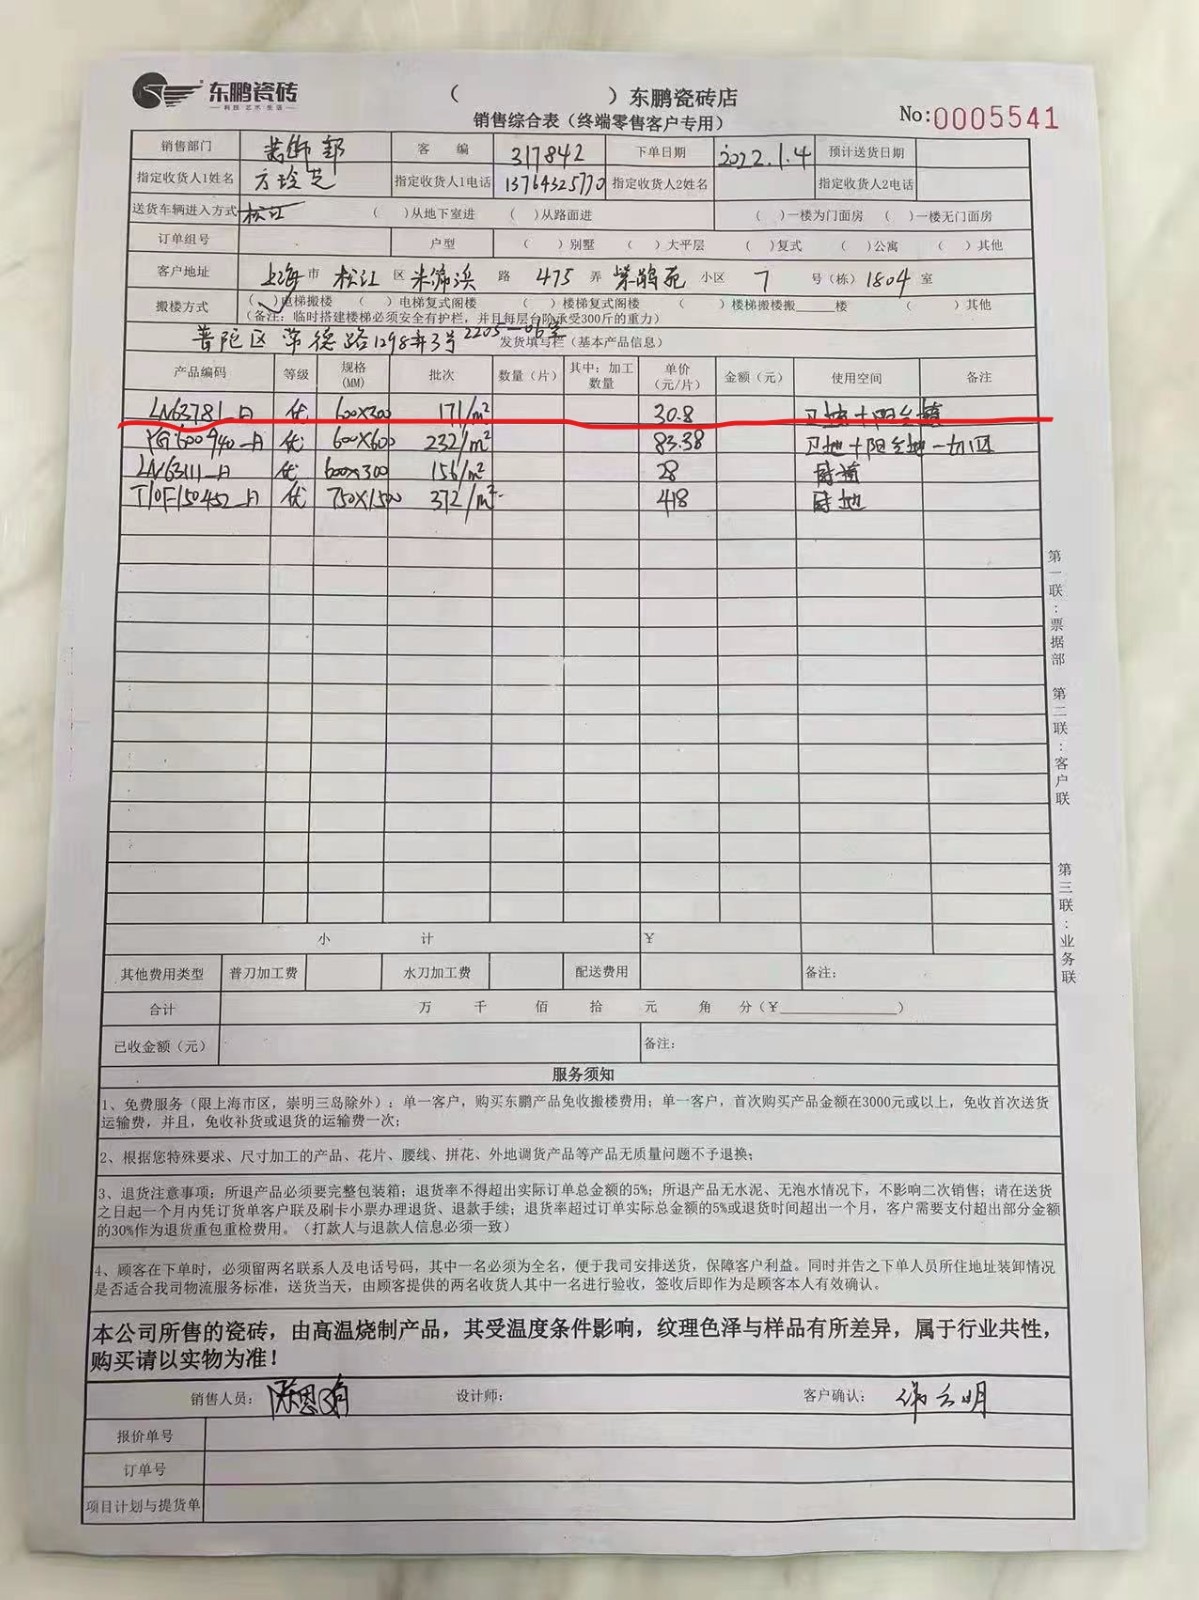 东鹏瓷砖
科技·艺术·生活
( )东鹏瓷砖店
销售综合表(终端零售客户专用)
No:0005541
销售部门 客 编 317842 下单日期 2022.1.4 预计送货日期
指定收货人1姓名 方玲芝 指定收货人1电话 13764325770 指定收货人2姓名 指定收货人2电话
送货车辆进入方式 松江 ( )从地下室进 ( )从路面进 ( )一楼为门面房 ( )一楼无门面房
订单组号 户型 ( )别墅 ( )大平层 ( )复式 ( )公寓 ( )其他
客户地址 上海 市 松江 区 路 475 弄 紫鹃苑 小区 7 号(栋) 1804 室
搬楼方式 ( )电梯搬楼 ( )电梯复式阁楼 ( )楼梯复式阁楼 ( )楼梯搬楼搬____楼 ( )其他
(备注:临时搭建楼梯必须安全有护栏,并且每层台阶承受300斤的重力)
普陀区常德路1298弄3号2205-06室 发货填写栏(基本产品信息)
产品编码 等级 规格(MM) 批次 数量(片) 其中:加工数量 单价(元/片) 金额(元) 使用空间 备注
LN63781-A 优 600X300 171/m² 30.8 卫墙+阳台墙
YG600940-A 优 600X600 232/m² 83.38 卫地+阳台地-切四
LN63111-A 优 600X300 156/m² 28 厨墙
T10F150452-A 优 750X1500 372/m² 418 厨地
小 计 ¥
其他费用类型 普刀加工费 水刀加工费 配送费用 备注:
合计 万 千 佰 拾 元 角 分(¥______)
已收金额(元) 备注:
服务须知
1、免费服务(限上海市区,崇明三岛除外):单一客户,购买东鹏产品免收搬楼费用;单一客户,首次购买产品金额在3000元或以上,免收首次送货
运输费,并且,免收补货或退货的运输费一次;
2、根据您特殊要求、尺寸加工的产品、花片、腰线、拼花、外地调货产品等产品无质量问题不予退换;
3、退货注意事项:所退产品必须要完整包装箱;退货率不得超出实际订单总金额的5%;所退产品无水泥、无泡水情况下,不影响二次销售;请在送货
之日起一个月内凭订货单客户联及刷卡小票办理退货、退款手续;退货率超过订单实际总金额的5%或退货时间超出一个月,客户需要支付超出部分金额
的30%作为退货重包重检费用。(打款人与退款人信息必须一致)
4、顾客在下单时,必须留两名联系人及电话号码,其中一名必须为全名,便于我司安排送货,保障客户利益。同时并告之下单人员所住地址装卸情况
是否适合我司物流服务标准,送货当天,由顾客提供的两名收货人其中一名进行验收,签收后即作为是顾客本人有效确认。
本公司所售的瓷砖,由高温烧制产品,其受温度条件影响,纹理色泽与样品有所差异,属于行业共性,
购买请以实物为准!
销售人员: 设计师: 客户确认:
报价单号
订单号
项目计划与提货单
第一联:票据部
第二联:客户联
第三联:业务联